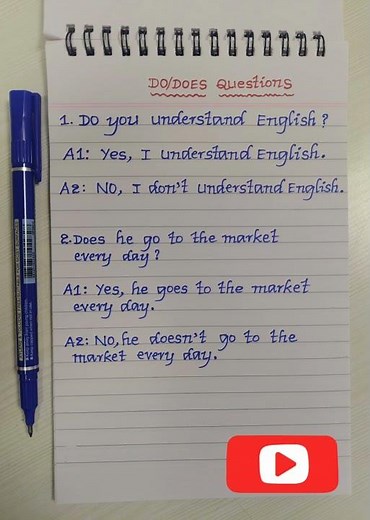 DO/DOES Questions
1. Do you understand English?
A1: Yes, I understand English.
A2: NO, I don't understand English.
2. Does he go to the market
every day?
A1: Yes, he goes to the market
every day.
A2: No, he doesn't go to the
market every day.